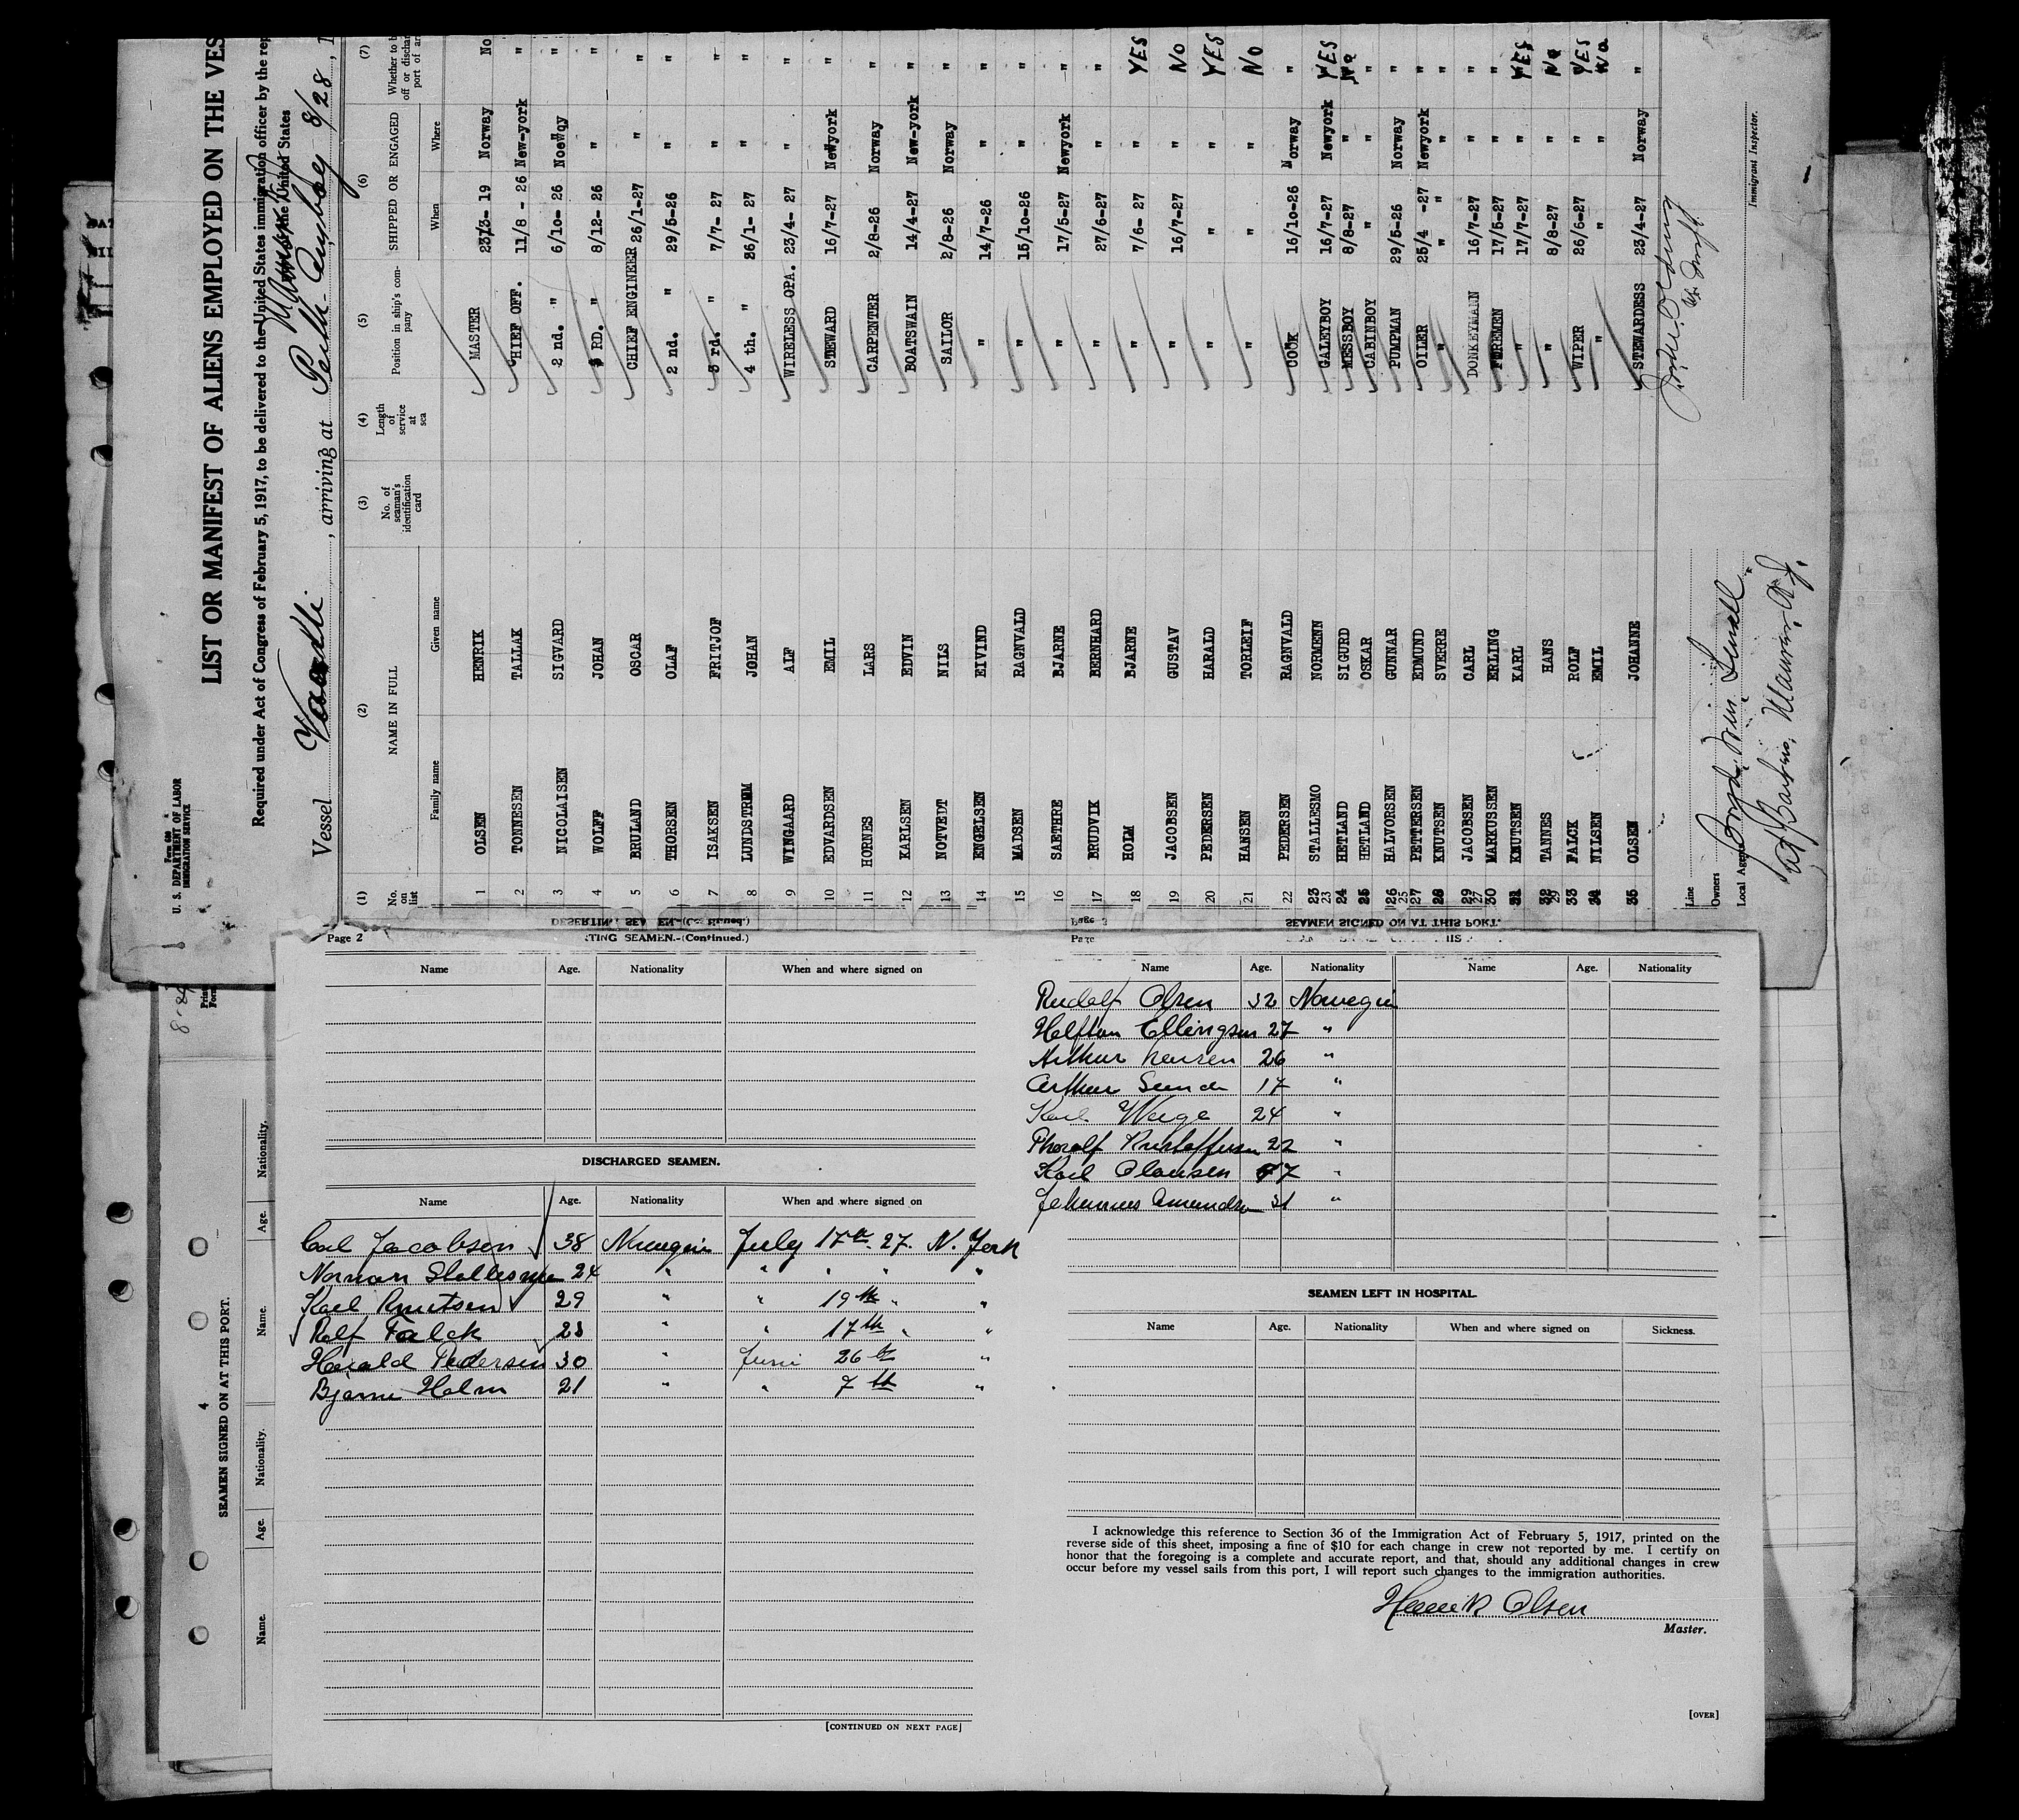 Form 680
U. S. DEPARTMENT OF LABOR
IMMIGRATION SERVICE
LIST OR MANIFEST OF ALIENS EMPLOYED ON THE VES
Required under Act of Congress of February 5, 1917, to be delivered to the United States immigration officer by the rep
Vessel , arriving at Perth-Amboy 8/28, 1
(1) (2) (3) (4) (5) (6) (7)
No. on list NAME IN FULL No. of seaman's identification card Length of service at sea Position in ship's company SHIPPED OR ENGAGED Whether to b off or dischar port of ar
Family name Given name When Where
1 OLSEN HENRIK MASTER 23/3- 19 Norway No
2 TONNESEN TALLAK HIEF OFF. 11/8 - 26 New-york "
3 NICOLAISEN SIGVARD 2 nd. " 6/10- 26 Noewqy "
4 WOLFF JOHAN 3 RD. " 8/12- 26 " "
5 BRULAND OSCAR CHIEF ENGINEER 26/1-27 " "
6 THORSEN OLAF 2 nd. " 29/5-26 " "
7 ISAKSEN FRITJOF 3 rd. " 7/7- 27 " "
8 LUNDSTRMM JOHAN 4 th. " 26/1- 27 " "
9 WINGAARD ALF WIRELESS OPA. 23/4- 27 " "
10 EDVARDSEN EMIL STEWARD 16/7-27 Newyork "
11 HORNES LARS CARPENTER 2/8-26 Norway "
12 KARLSEN EDVIN BOATSWAIN 14/4-27 New-york "
13 NOTVEDT NILS SAILOR 2/8-26 Norway "
14 ENGELSEN EIVIND " 14/7-26 " "
15 MADSEN RAGNVALD " 15/10-26 " "
16 SAETHRE BJARNE " 17/5-27 Newyork "
17 BRUDVIK BERNHARD " 27/6-27 " "
18 HOLM BJARNE " 7/6- 27 " YES
19 JACOBSEN GUSTAV " 16/7-27 " No
20 PEDERSEN HARALD " " " YES
21 HANSEN TORLEIF " " " No
22 PEDERSEN RAGNVALD COOK 16/10-26 Norway "
23 STALLESMO NORMENN GALEYBOY 16/7-27 Newyork YES
24 HETLAND SIGURD MESSBOY 8/8-27 " No
25 HETLAND OSKAR CABINBOY " " "
26 HALVORSEN GUNNAR PUMPMAN 29/5-26 Norway "
27 PETTERSEN EDMUND OILER 25/4 -27 Newyork "
28 KNUTSEN SVERRE " " " " "
29 JACOBSEN CARL DONKEYMANN 16/7-27 " "
30 MARKUSSEN ERLING FOREMEN 17/5-27 " "
31 KNUTSEN KARL " 17/7-27 " YES
32 TANNES HANS " 8/8-27 " No
33 FALCK ROLF WIPER 26/6-27 " YES
34 NILSEN EMIL " " " No
35 OLSEN JOHANNE STEWARDESS 23/4-27 Norway "
Line
Owners
Local Agents
Immigrant Inspector.
Page 2
TING SEAMEN.-(Continued.)
Name Age. Nationality When and where signed on
DISCHARGED SEAMEN.
Name Age. Nationality When and where signed on
Carl Jacobsen 38 Norwegin July 17th 27. N. York
Norman Stellesmo 24 " " " " "
Karl Knutsen 29 " " 19th " "
Rolf Falck 23 " " 17th " "
Harald Pedersen 30 " Juni 26th "
Bjarne Holm 21 " " 7th "
[CONTINUED ON NEXT PAGE]
Name Age. Nationality Name Age. Nationality
Rudolf Olsen 32 Norwegin
Ellingsen 27 "
Arthur 26 "
Arthur 17 "
Karl 24 "
22 "
"
Johannes 31 "
SEAMEN LEFT IN HOSPITAL.
Name Age. Nationality When and where signed on Sickness.
I acknowledge this reference to Section 36 of the Immigration Act of February 5, 1917, printed on the
reverse side of this sheet, imposing a fine of $10 for each change in crew not reported by me. I certify on
honor that the foregoing is a complete and accurate report, and that, should any additional changes in crew
occur before my vessel sails from this port, I will report such changes to the immigration authorities.
Henrik Olsen
Master.
[OVER]
4
SEAMEN SIGNED ON AT THIS PORT.
Name. Age. Nationality. Name. Age. Nationality.